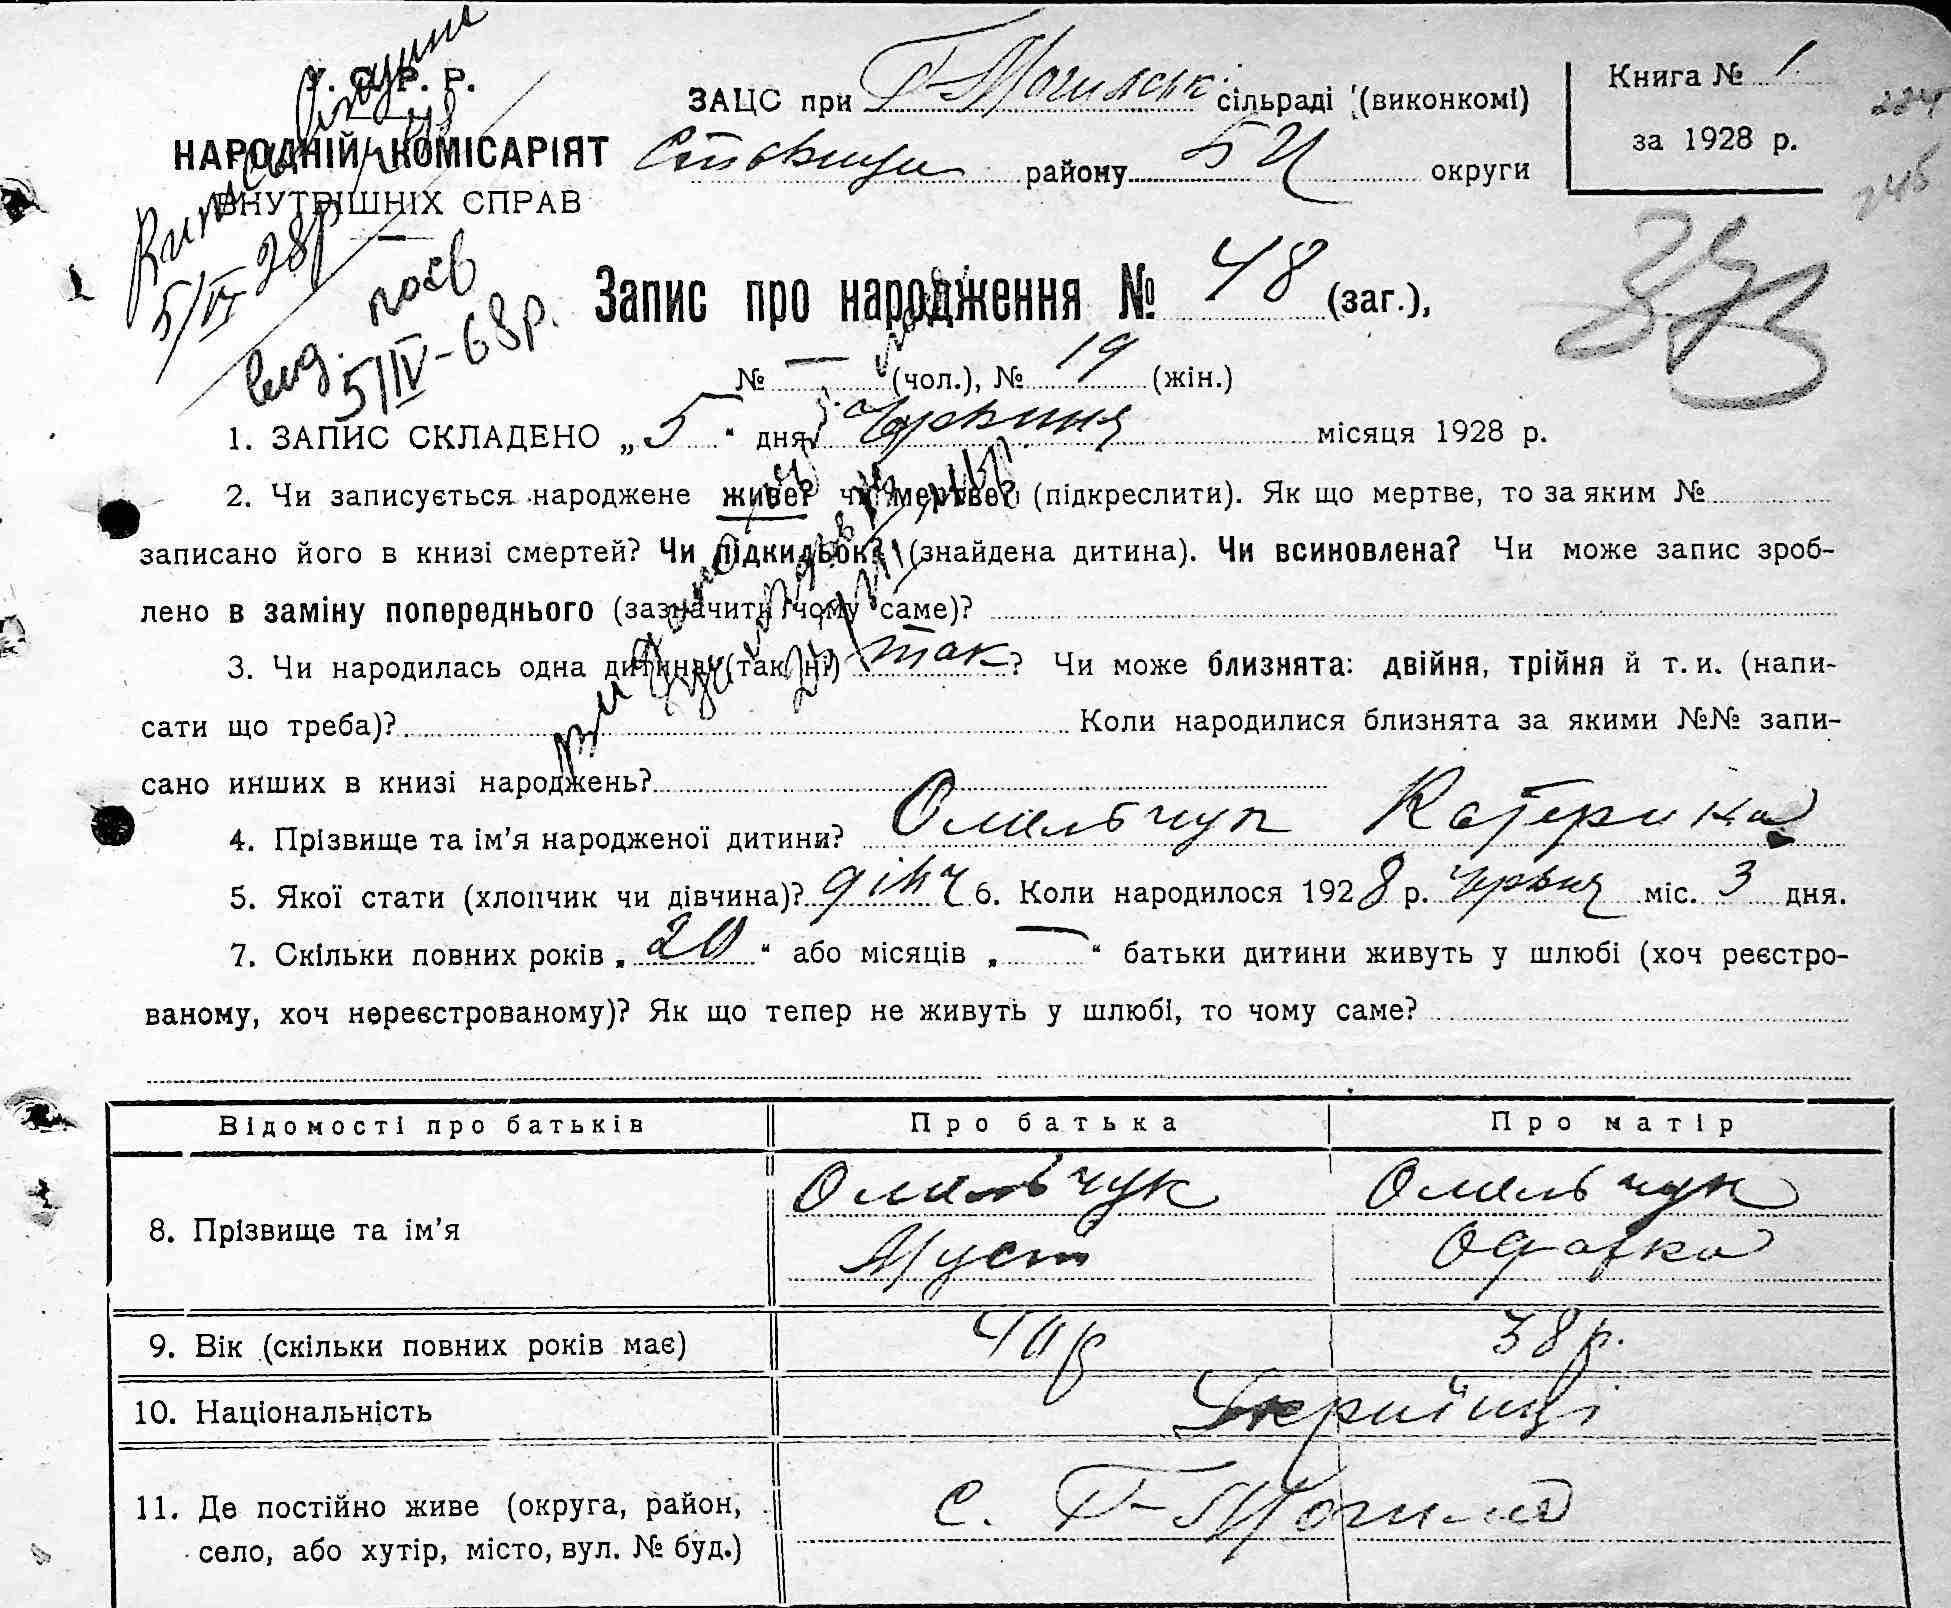 У. С. Р. Р.
НАРОДНІЙ КОМІСАРІЯТ
ВНУТРІШНІХ СПРАВ
ЗАЦС при Г-Могилськ. сільраді (виконкомі)
району БЦ округи
Книга № 1
за 1928 р.
224
246
5/VI 28р
вид. посв
5/IV-68р.
Запис про народження № 48 (заг.),
№ — (чол.), № 19 (жін.)
1. ЗАПИС СКЛАДЕНО „ 5 “ дня Червиня місяця 1928 р.
2. Чи записується народжене живе? чи мертве? (підкреслити). Як що мертве, то за яким №
записано його в книзі смертей? Чи підкидьок? (знайдена дитина). Чи всиновлена? Чи може запис зроб-
лено в заміну попереднього (зазначити чому саме)?
3. Чи народилась одна дитина (так, ні) так ? Чи може близнята: двійня, трійня й т. и. (напи-
сати що треба)? Коли народилися близнята за якими №№ запи-
сано инших в книзі народжень?
4. Прізвище та ім’я народженої дитини? Омельчук Катерина
5. Якої стати (хлопчик чи дівчина)? дівч 6. Коли народилося 1928 р. червня міс. 3 дня.
7. Скільки повних років „ 20 “ або місяців „ — “ батьки дитини живуть у шлюбі (хоч реєстро-
ваному, хоч нереєстрованому)? Як що тепер не живуть у шлюбі, то чому саме?
Відомості про батьків Про батька Про матір
8. Прізвище та ім’я Омельчук Омельчук
Муст Одарка
9. Вік (скільки повних років має) 40р 38р.
10. Національність Українці
11. Де постійно живе (округа, район, с. Г-Могила
село, або хутір, місто, вул. № буд.)